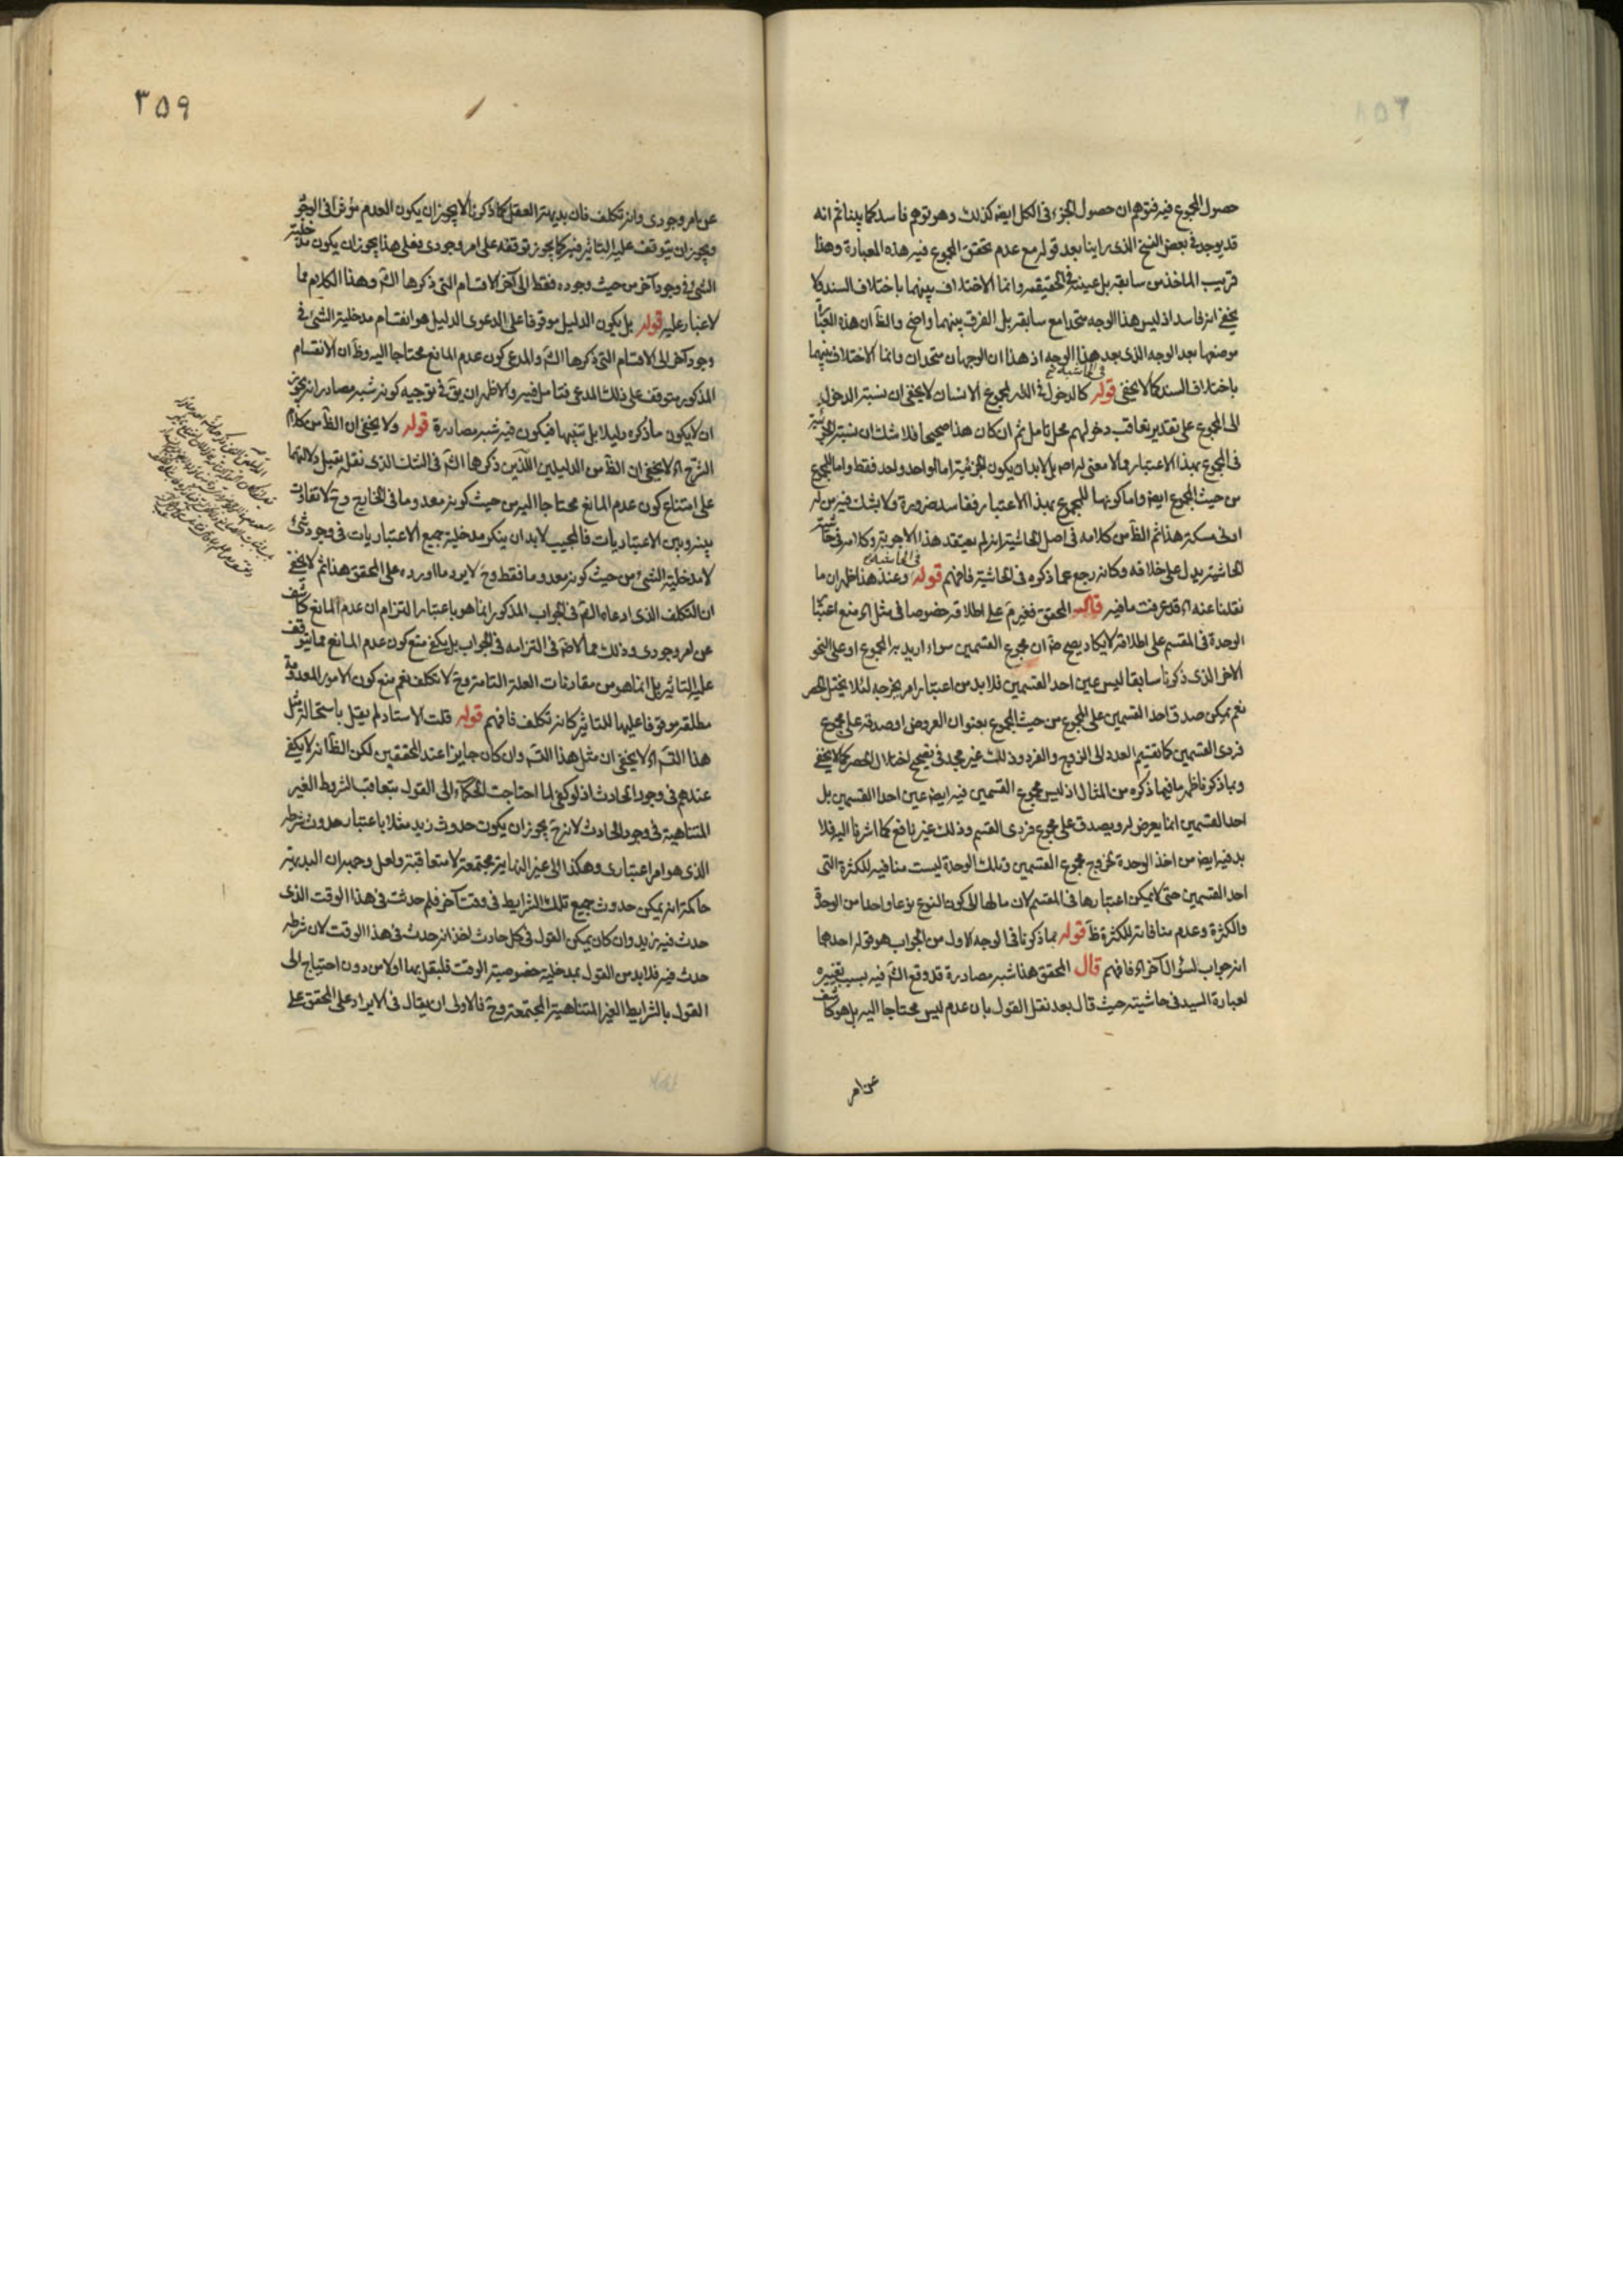 حصول المجموع فيه فتوهم ان حصول الجزء فى الكل ايضا كذلك وهو توهم فاسد كما بينا ثم انه
قد يوجد فى بعض النسخ الذى راينا بعد قوله مع عدم تحقق المجموع فيه هذه العبارة وهذا
قريب الماخذ من سابقه بل عينه فى الحقيقه وانما الاختلاف بينهما باختلاف السند ولا
يخفى انه فاسد اذ ليس هذا الوجه متحدا مع سابقه بل الفرق بينهما واضح والظ ان هذه
موضعها بعد الوجه الذى بعد هذا الوجه اذ هذا ان الوجهان متحدان وانما الاختلاف بينهما
باختلاف السند كما لا يخفى قوله كالدخول فى الدار لمجموع الانسان لا يخفى ان نسبة الدخول
الى المجموع على تقدير تعاقب دخولهم محل تامل ثم ان كان هذا صحيحا فلا شك ان نسبة
فى المجموع بهذا الاعتبار مما لا معنى له اصلا بل لابد ان يكون الجزئية اما لواحد واحد فقط واما للمجموع
من حيث المجموع ايضا واما كونها للمجموع بهذا الاعتبار ففاسد ضرورة ولا يشك فيه من له
ادنى مسكة هذا ثم الظ من كلامه فى اصل الحاشية انه لم يعتقد هذا الاجوبة وكلامه فى حاشية
الحاشية يدل على خلافه وكانه رجع عما ذكره فى الحاشية فافهم قوله وعند هذا ظهر ان ما
نقلنا عنه اه قد عرفت ما فيه قال المحقق فغير م على اطلاقه خصوصا فى مثل اه منع اعتبار
الوحدة فى المقسم على اطلاقه لا يكاد يصح ض ان مجموع القسمين سواء اريد به المجموع او على النحو
الاخر الذى ذكرنا سابقا ليس عين احد القسمين فلا بد من اعتبار امر يخرجه لئلا يختل الحصر
نعم يمكن صدق احد القسمين على المجموع من حيث المجموع بعنوان العروض او صدقه على مجموع
فردى القسمين كما تقسيم العدد الى الزوج والفرد وذلك غير مجد فى تصحيح اختلال الحصر كما لا يخفى
وبما ذكرنا ظهر ما فيما ذكره من المثال اذ ليس مجموع القسمين فيه ايضا عين احد القسمين بل
احد القسمين انما يعرض له ويصدق على مجموع فردى القسم وذلك غير نافع كما اشرنا اليه فلا
بد فيه ايضا من اخذ الوحدة لخروج مجموع القسمين وتلك الوحدة ليست منافيه للكثرة التى
احد القسمين حتى لا يمكن اعتبارها فى المقسم لان مالها الى كون النوع نوعا واحدا من الوحدة
والكثرة وعدم منافاته للكثرة ظ قوله بما ذكرنا فى الوجه الاول من الجواب هو قوله احدهما
انه جواب لسؤال آخر اه فافهم قال المحقق هذا شبه مصادرة قد وقع الش فيه بسبب تغييره
لعبارة السيد فى حاشيته حيث قال بعد نقل القول بان عدم ليس محتاجا اليه بل هو كاشف
عن امر
٣٥٩
عن امر وجودى وانه تكلف فان بديهة العقل كما ذكرنا لا يجوز ان يكون العدم مؤثرا فى الوجود
ويجوز ان يتوقف عليه التاثير فيه كما يجوز توقفه على امر وجودى فعلى هذا يجوز ان يكون مدخلية
الشئ فى وجود آخر من حيث وجوده فقط الى آخر الاقسام التى ذكرها الش وهذا الكلام مما
لا غبار عليه قوله بل يكون الدليل موقوفا على الدعوى الدليل هو انقسام مدخلية الشئ فى
وجود آخر الى الاقسام التى ذكرها الش والمدعى كون عدم المانع محتاجا اليه وظ ان الانقسام
المذكور يتوقف على ذلك المدعى فتامل فيه والاظهر ان يق فى توجيه كونه شبه مصادرة انه يجوز
ان لا يكون ما ذكره دليلا بل تنبيها فيكون فيه شبه مصادرة قوله ولا يخفى ان الظ من كلام
الشرح اه لا يخفى ان الظ من الدليلين اللذين ذكرهما الش فى الشك الذى نقله بقيل دلالتهما
على امتناع كون عدم المانع محتاجا اليه من حيث كونه معدوما فى الخارج وح لا تفاوت
بينه وبين الاعتباريات فالمجيب لابد ان ينكر مدخلية جميع الاعتباريات فى وجود شئ
لا مدخلية الشئ من حيث كونه معدوما فقط وح لا يرد ما اورده على المحقق هذا ثم لا يخفى
ان التكلف الذى ادعاه الش فى الجواب المذكور انما هو باعتبار التزام ان عدم المانع كاشف
عن امر وجودى وذلك مما لا ض فى التزامه فى الجواب بل يكفى منع كون عدم المانع مما يتوقف
عليه التاثير بل انما هو من مقارنات العلة التامة وح لا تكلف نعم منع كون الامور المعدومة
مطلقه موقوفا عليها للتاثير كانه تكلف فافهم قوله قلت الاستاد لم يقل باستحالة مثل
هذا القسم اه لا يخفى ان مثل هذا القسم وان كان جايزا عند المحققين لكن الظ انه لا يكفى
عندهم فى وجود الحادث اذ لو كفى لما احتاجت الحكماء الى القول بتعاقب الشروط الغير
المتناهية فى وجود الحادث لانه ح يجوز ان يكون حدوث زيد مثلا باعتبار حدوث شرطه
الذى هو امر اعتبارى وهكذا الى غير النهاية مجتمعة لا متعاقبة ولعل وجهه ان البديهة
حاكمة انه يمكن حدوث جميع تلك الشرايط فى وقت آخر فلم حدثت فى هذا الوقت الذى
حدث فيه زيد وان كان يمكن القول فى كل حادث اخذ انه حدث فى هذا الوقت لان شرطه
حدث فيه فلا بد من القول بمدخلية خصوصية الوقت فليقل بها اولا من دون احتياج الى
القول بالشرايط الغير المتناهية المجتمعة وح فالاولى ان يقال فى الايراد على المحقق على